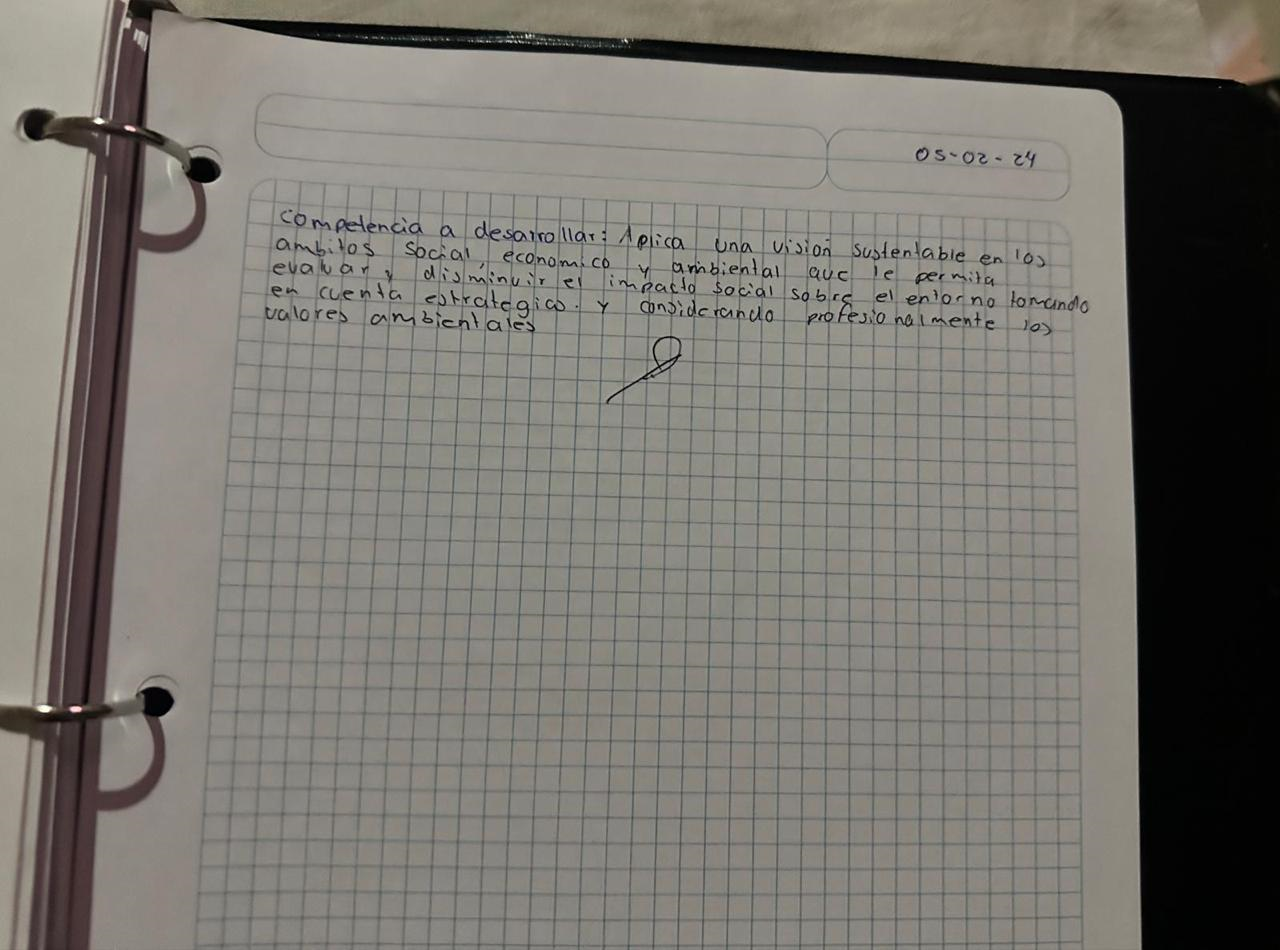 05-02-24
competencia a desarrollar: Aplica una visión sustentable en los
ambitos social, economico y ambiental que le permita
evaluar y disminuir el impacto social sobre el entorno tomando
en cuenta estrategias y considerando profesionalmente los
valores ambientales